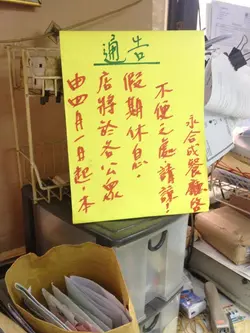 通告
由四月一日起，本
店將於各公眾
假期休息.
不便之處請諒!
永合成餐廳啓